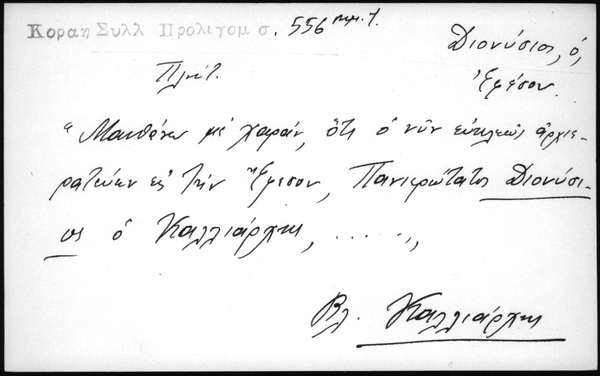 Κοραη Συλλ Προλεγομ σ. 556 σημ. 1.
Διονύσιος, ὁ,
Ἐφέσου.
Πλουτ.
"Μανθάνω μὲ χαράν, ὅτι ὁ νῦν εὐκλεῶς ἀρχιε-
ρατεύων εἰς τὴν Ἔφεσον, Πανιερώτατος Διονύσι-
ος ὁ Καλλιάρχης, .....,,
Βλ. Καλλιάρχης